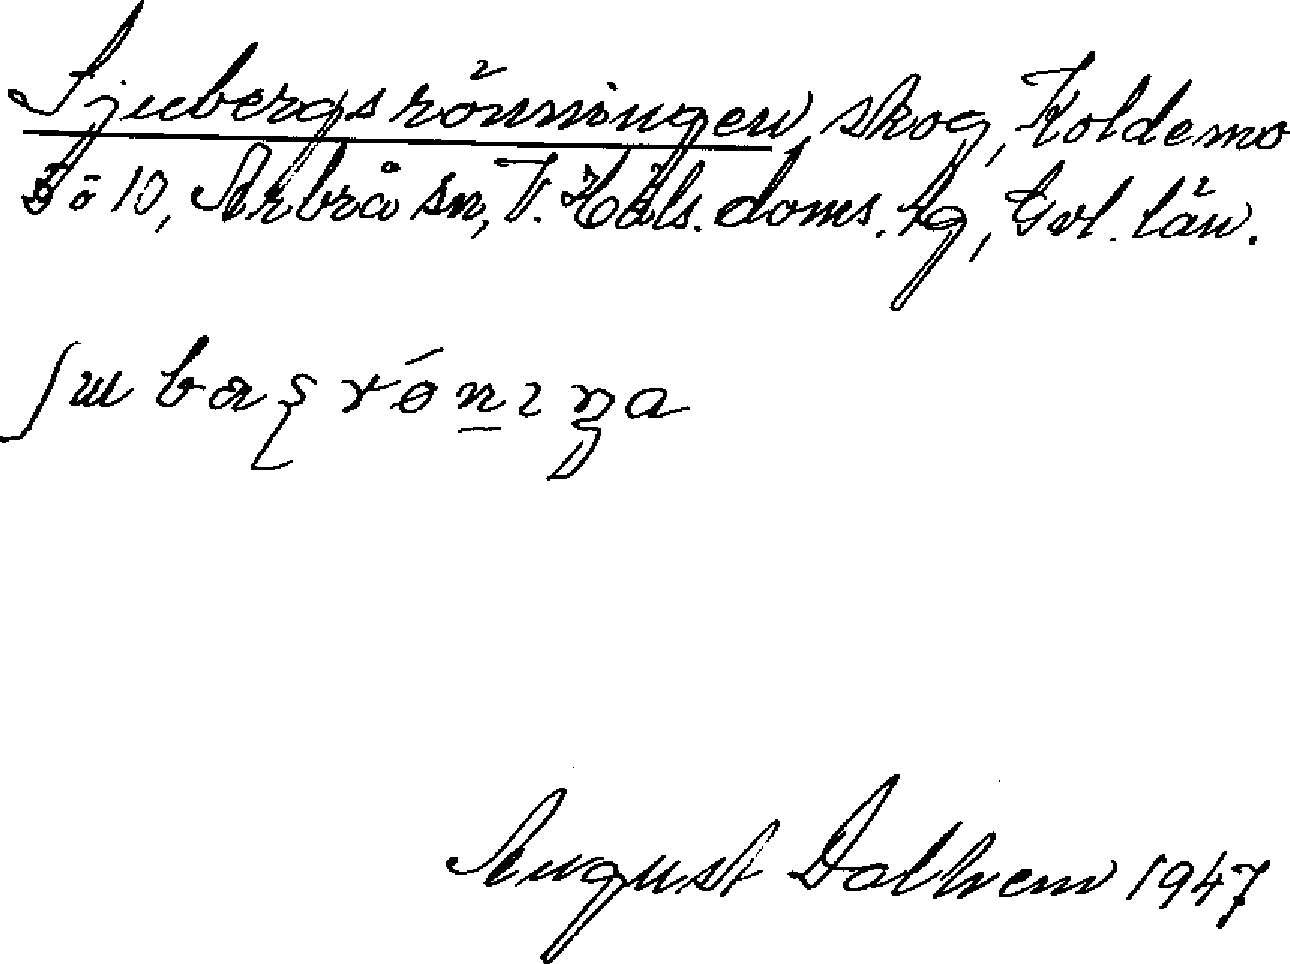 Sjubergsrönningen, skog, Koldemo
5ö 10, Arbrå sn, V. Häls. doms. hg, Gvl. län.
August Dalhem 1947